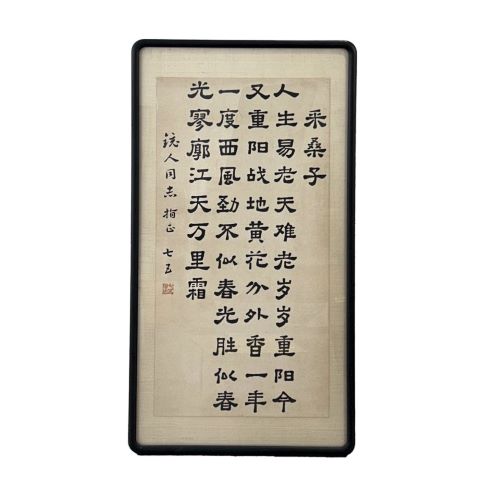 采桑子
人生易老天难老岁岁重阳今
又重阳战地黄花分外香一年
一度西风劲不似春光胜似春
光寥廓江天万里霜
人同志指正 七五